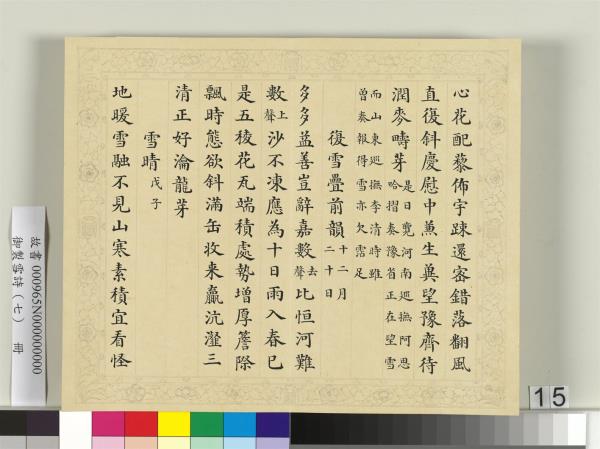 心花配藜佈宇疎還密錯落翻風
直復斜慶慰中蕉生冀望豫齊待
潤麥疇芽是日覽河南巡撫阿思
哈摺奏豫省正在望雪
而山東巡撫李清時雖
曾奏報得雪亦欠霑足
復雪疊前韻十二月
二十日
多多益善豈辭嘉數去聲比恒河難
數上聲沙不凍應為十日雨入春已
是五稜花瓦端積處勢增厚簷際
飄時態欲斜滿缶收來贏沆瀣三
清正好瀹龍芽
雪晴戊子
地暖雪融不見山寒素積宜看怪
故書 000965N000000000
御製雪詩(七) 冊
15